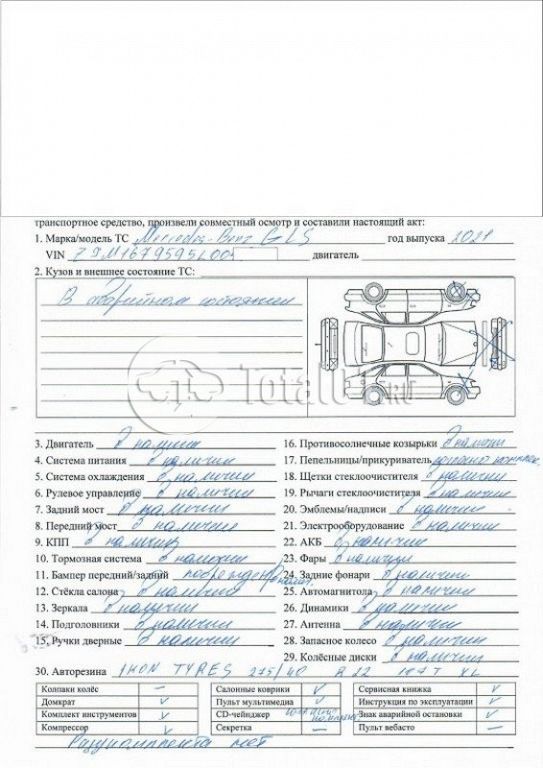 транспортное средство, произвели совместный осмотр и составили настоящий акт:
1. Марка/модель ТС Mercedes-Benz GLS год выпуска 2021
VIN Z9M1679595L00 двигатель
2. Кузов и внешнее состояние ТС:
В аварийном состоянии
Total01.RU
3. Двигатель в наличии
4. Система питания в наличии
5. Система охлаждения в наличии
6. Рулевое управление в наличии
7. Задний мост в наличии
8. Передний мост в наличии
9. КПП в наличии
10. Тормозная система в наличии
11. Бампер передний/задний поврежден
12. Стёкла салона в наличии
13. Зеркала в наличии
14. Подголовники в наличии
15. Ручки дверные в наличии
16. Противосолнечные козырьки в наличии
17. Пепельницы/прикуриватель
18. Щетки стеклоочистителя в наличии
19. Рычаги стеклоочистителя в наличии
20. Эмблемы/надписи в наличии
21. Электрооборудование в наличии
22. АКБ в наличии
23. Фары в наличии
24. Задние фонари в наличии
25. Автомагнитола в наличии
26. Динамики в наличии
27. Антенна в наличии
28. Запасное колесо в наличии
29. Колёсные диски в наличии
30. Авторезина IKON TYRES 275/40 R22 107T XL
Колпаки колёс –
Домкрат v
Комплект инструментов v
Компрессор v
Салонные коврики v
Пульт мультимедиа v
CD-чейнджер
Секретка –
Сервисная книжка v
Инструкция по эксплуатации v
Знак аварийной остановки v
Пульт вебасто –
Разукомплекта нет